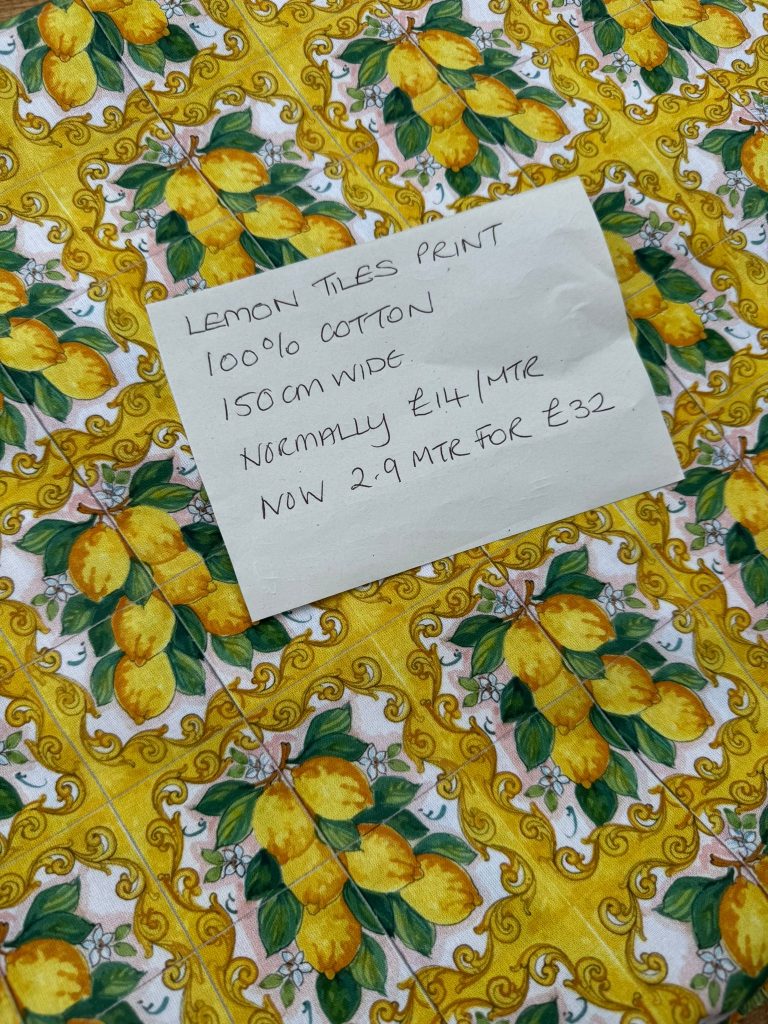 LEMON TILES PRINT
100% COTTON
150CM WIDE
NORMALLY £14/MTR
NOW 2.9 MTR FOR £32